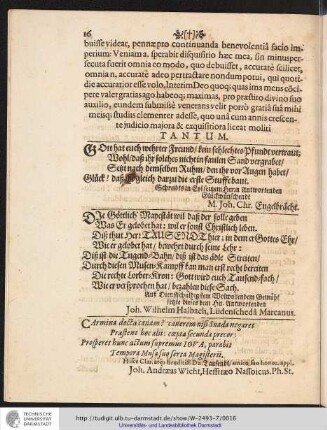 16. (†)
buisse videar, pennæpto continuanda benevolentiâ facio im-
perium: Veniam a. sperabit disquisitio hæc mea, sin minus per-
secuta fuerit omnia eo modo, quo debuisset, accuratè scilicet,
omnia n. accuratè adeo pertractare nondum potui, qui quoti-
die accuratior esse volo, Interim Deo quoqȝ quas ima mens cōci-
pere valet gratias ago habeoqȝ maximas, pro præstito divino suo
auxilio, eundem submissè venerans velit porrò gratiâ suâ mihi
meisqȝ studiis clementer adesse, quo unà cum annis crescen-
te judicio majora & exquisitiora liceat moliri
TANTUM.
GOtt hat euch wehrter Freund / kein schlechtes Pfund vertraut;
Wohl / daß ihr solches nicht in faulen Sand vergrabet /
Setzt nach demselben Ruhm / den ihr vor Augen habet /
Glück! daß ihr gleich darzu die erste Stuffe baut.
Schreibts in Eyl seinem Herrn Antwortenden
Glückwünschende
M. Joh. Chr. Engelbrächt.
DIe Göttlich' Majestät will daß der solle geben
Was Er gelobet hat: wil er sonst Christlich leben.
Diß thut Herr TAUSEND hier: in dem er Gottes Ehr /
Wie er gelobet hat / bewehrt durch seine Lehr:
Diß ist die Tugend-Bahn / diß ist das edle Streiten /
Durch diesen Musen-Kampff kan man erst recht bereiten
Die rechte Lorber-Kron: Gott wird euch Tausendfach /
Wie er versprochen hat / bezahlen diese Sach.
Joh. Wilhelm Halbach, Lüdenschedâ Marcanus.
CArmina docta cauam? ramerem nisi Suada negaret
Præstent hoc alii: cœpta secunda precor.
Prosperet hunc actum supremus JOVA, parabit
Tempora Musa suo serta Magisterii.
Joh. Andreas Wicht, Hesstræo Nassoicus. Ph. St.
TECHNISCHE
UNIVERSITÄT
DARMSTADT
http://tudigit.ulb.tu-darmstadt.de/show/W-2495-7/0016
Universitäts- und Landesbibliothek Darmstadt